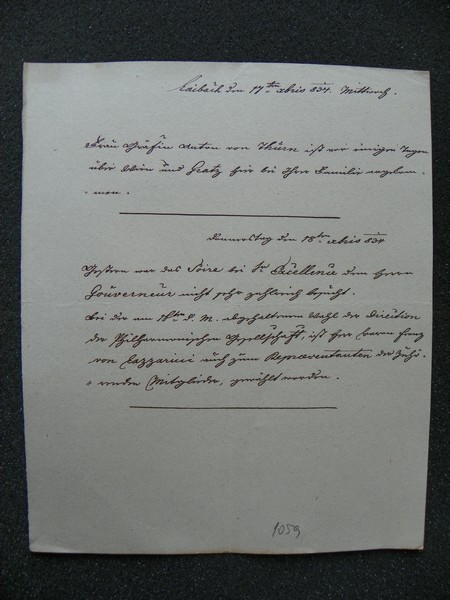 Laibach den 17ten xbris 834. Mittwoch.
Frau Gräfin Anton von Thurn ist vor einigen Tagen
über Wien und Gratz hier bei Ihrer Familie angekom-
- men.
Donnerstag den 18ten xbris 834
Gestern war das Soire bei Sr. Excellenz dem Herrn
Gouverneur nicht sehr zahlreich besucht.
Bei der am d. M. abgehaltenen Wahl der Direction
der Philharmonischen Gesellschaft, ist Herr Baron Franz
von Lazzarini auch zum Repräsentanten der
Mitglieder, gewählt worden.
1059